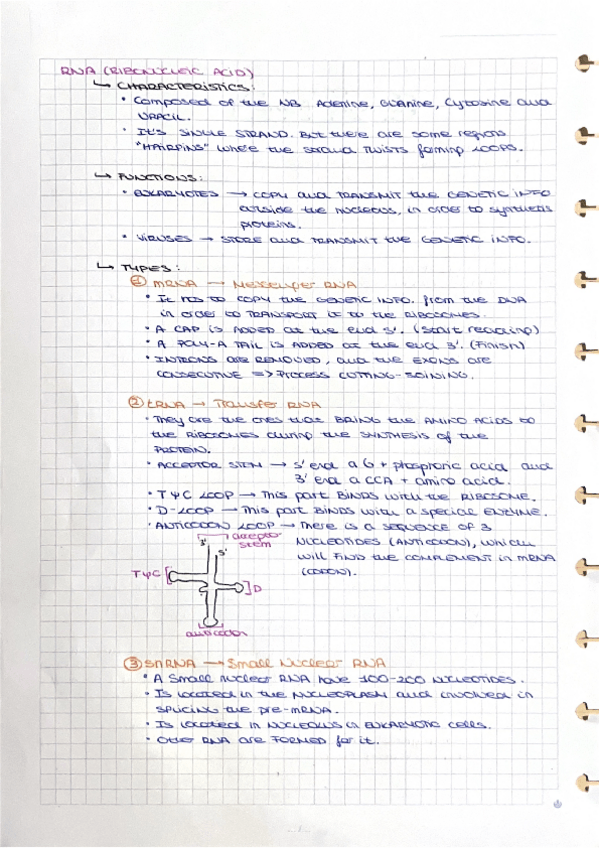 RNA (RIBONUCLEIC ACID)
↳ CHARACTERISTICS:
• Composed of the NB Adenine, Guanine, Cytosine and
URACIL.
• It's SINGLE STRAND. But there are some regions
"HAIRPINS" where the strand TWISTS forming LOOPS.
↳ FUNCTIONS:
• EUKARYOTES → COPY and TRANSMIT the GENETIC INFO
outside the nucleous, in order to synthesis
proteins.
• VIRUSES → STORE and TRANSMIT the GENETIC INFO.
↳ TYPES:
① mRNA → Messenger RNA
• It has to COPY the GENETIC INFO. from the DNA
in order to TRANSPORT it to the RIBOSOMES.
• A CAP is ADDED at the end 5'. (Start reading)
• A POLY-A TAIL is ADDED at the end 3'. (Finish)
• INTRONS ARE REMOVED, and the EXONS are
CONSECUTIVE => PROCESS CUTTING-JOINING.
② tRNA → Transfer RNA
• They are the ones that BRING the AMINO ACIDS to
the RIBOSOMES during the SYNTHESIS of the
PROTEIN.
• ACCEPTOR STEM → 5' end a G + phosphoric acid and
3' end a CCA + amino acid.
• TΨC LOOP → This part BINDS with the RIBOSOME.
• D-LOOP → This part BINDS with a special ENZYME.
• ANTICODON LOOP → There is a SEQUENCE OF 3
NUCLEOTIDES (ANTICODON), which
will FIND the COMPLEMENT in mRNA
(CODON).
acceptor
stem
3'
5'
TΨC
D
anticodon
③ snRNA → Small Nuclear RNA
• A Small nuclear RNA have 100-200 NUCLEOTIDES.
• Is located in the NUCLEOPLASM and involved in
SPLICING the pre-mRNA.
• Is located in NUCLEOLUS in EUKARYOTIC cells.
• Other RNA are FORMED for it.